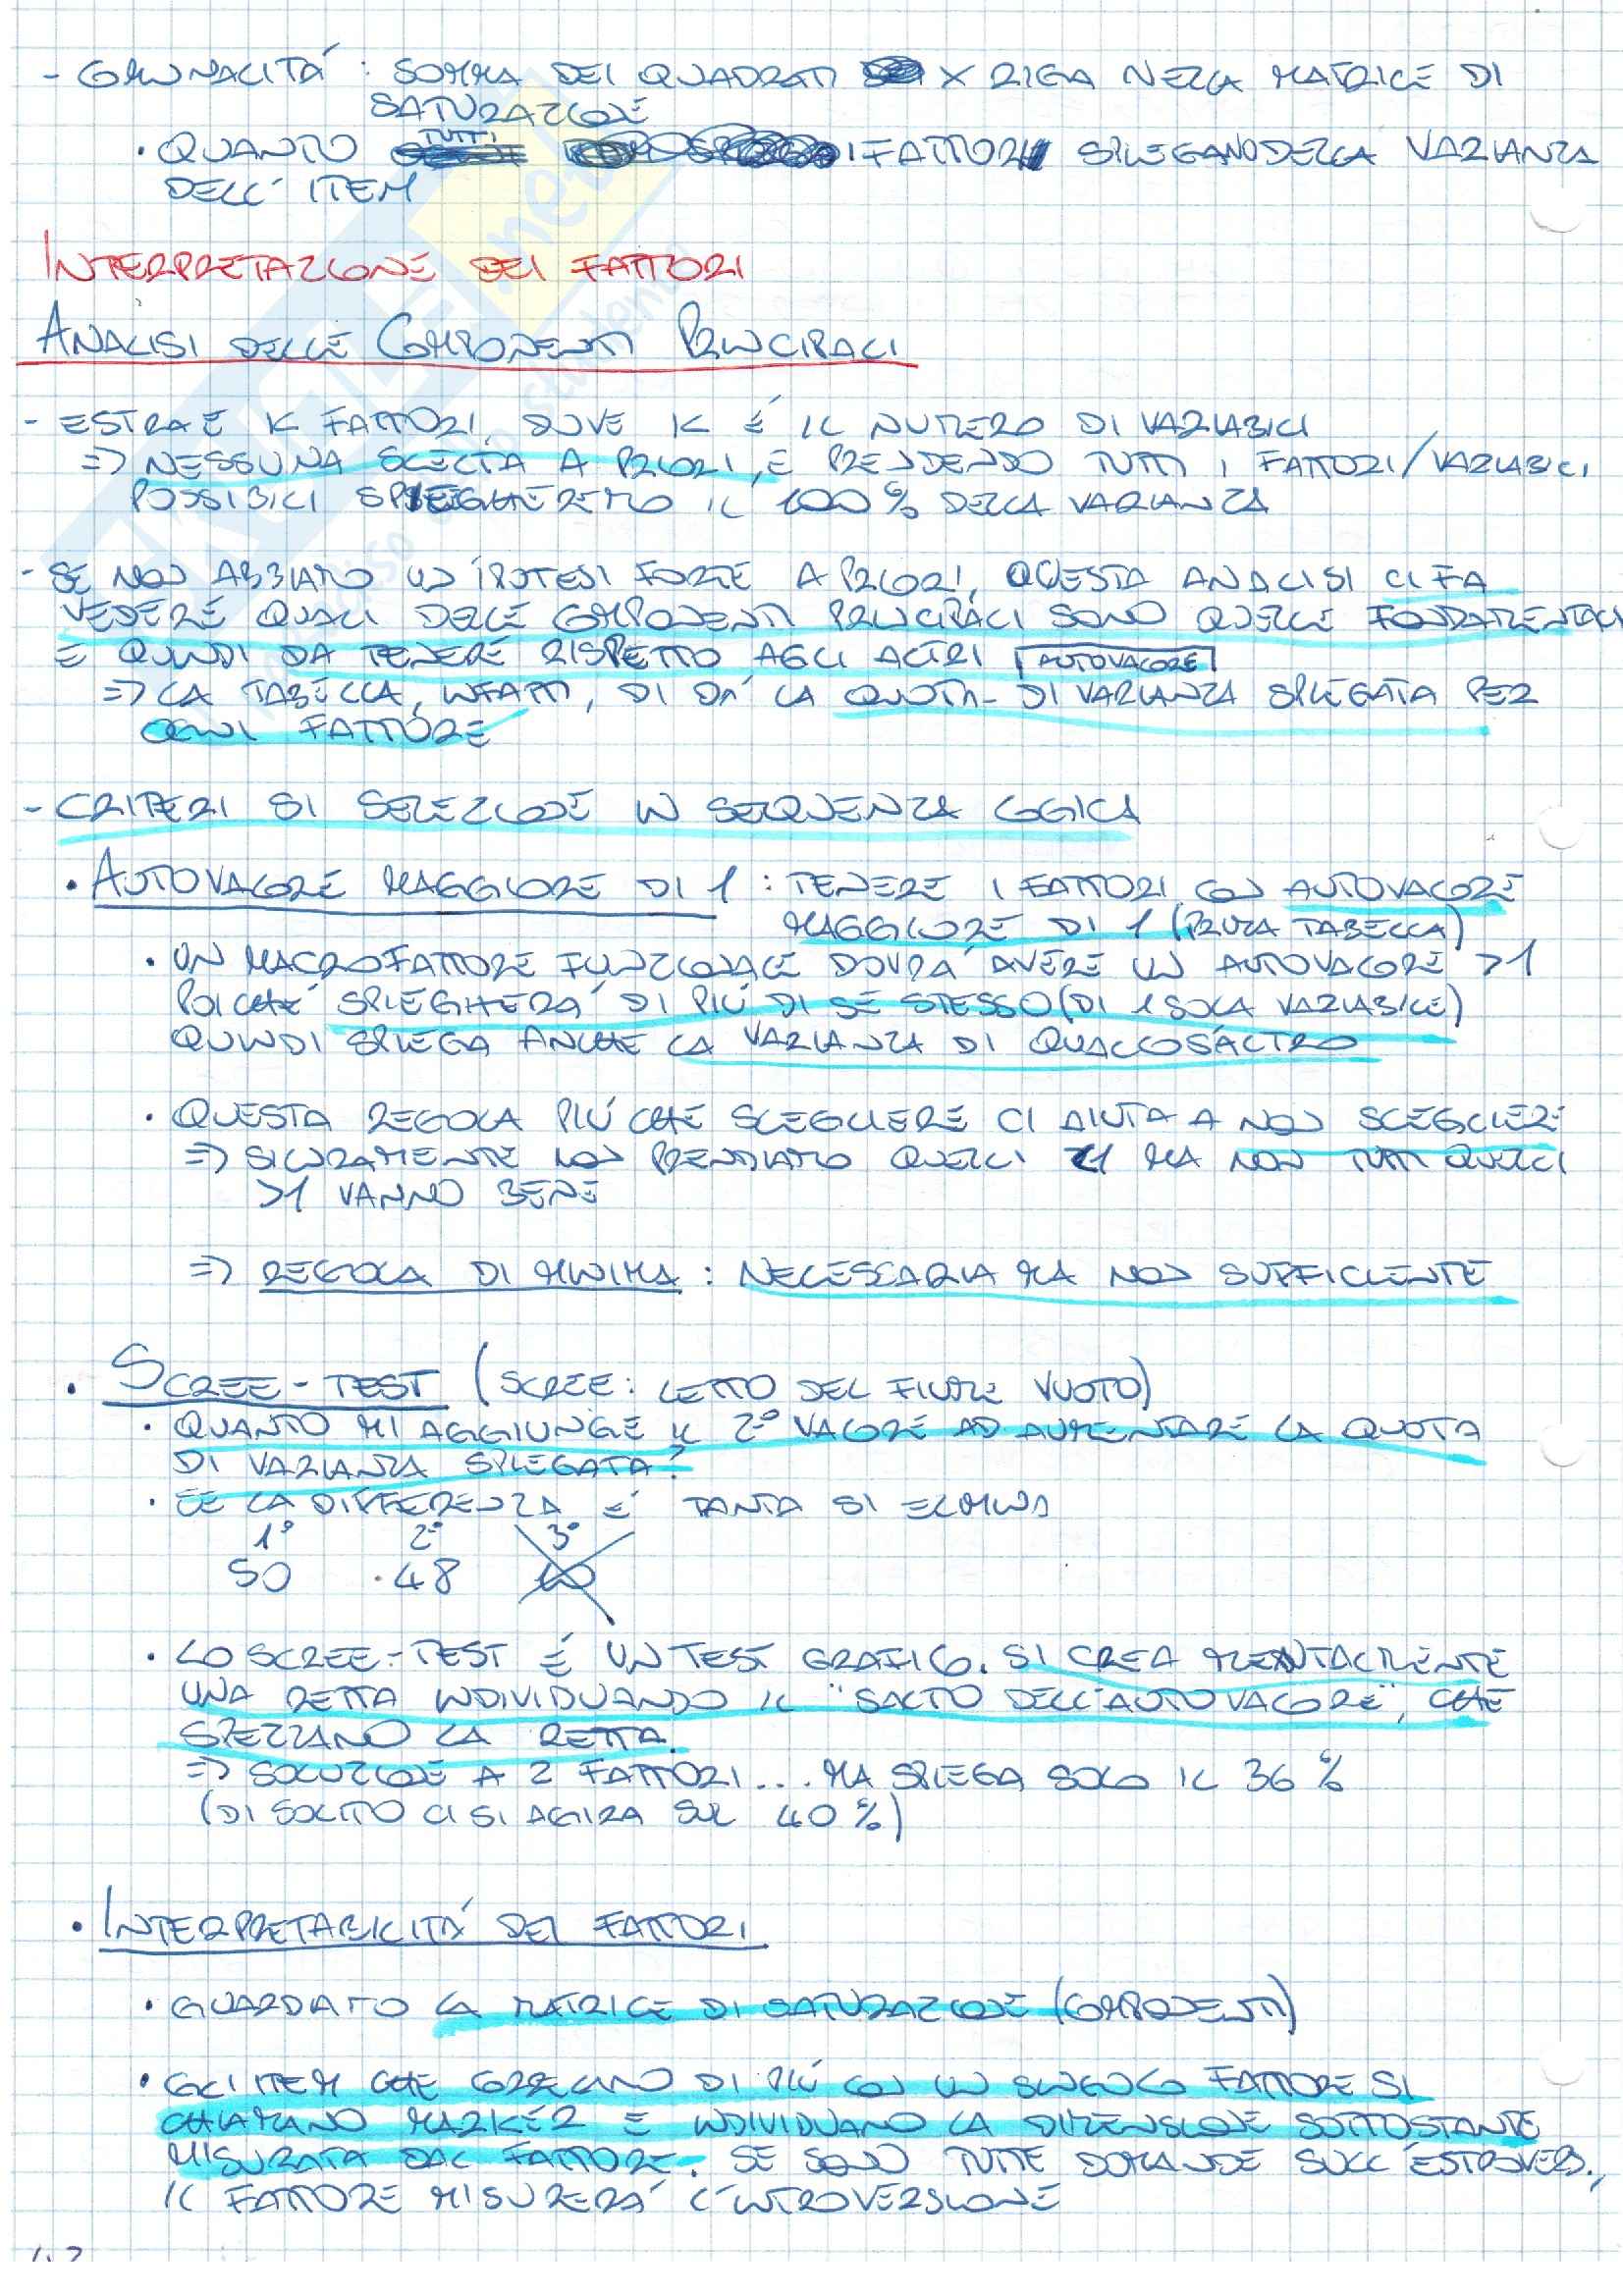 - COMUNALITÁ : SOMMA DEI QUADRATI X RIGA NELLA MATRICE DI
SATURAZIONE
• QUANTO TUTTI I FATTORI SPIEGANO DELLA VARIANZA
DELL' ITEM
INTERPRETAZIONE DEI FATTORI
ANALISI DELLE COMPONENTI PRINCIPALI
- ESTRAE K FATTORI, DOVE K É IL NUMERO DI VARIABILI
=> NESSUNA SCELTA A PRIORI, E PRENDENDO TUTTI I FATTORI/VARIABILI
POSSIBILI SPIEGHEREMO IL 100% DELLA VARIANZA
- SE NON ABBIAMO UN IPOTESI FORTE A PRIORI, QUESTA ANALISI CI FA
VEDERE QUALI DELLE COMPONENTI PRINCIPALI SONO QUELLE FONDAMENTALI
E QUINDI DA TENERE RISPETTO AGLI ALTRI AUTOVALORE
=> LA TABELLA, INFATTI, DI DA' LA QUOTA DI VARIANZA SPIEGATA PER
OGNI FATTORE
- CRITERI DI SELEZIONE IN SEQUENZA LOGICA
• AUTOVALORE MAGGIORE DI 1 : TENERE I FATTORI CON AUTOVALORE
MAGGIORE DI 1 (PRIMA TABELLA)
• UN MACROFATTORE FUNZIONALE DOVRA' AVERE UN AUTOVALORE >1
POICHE' SPIEGHERA' DI PIÚ DI SÉ STESSO (DI 1 SOLA VARIABILE)
QUINDI SPIEGA ANCHE LA VARIANZA DI QUALCOS'ALTRO
• QUESTA REGOLA PIÚ CHE SCEGLIERE CI AIUTA A NON SCEGLIERE
=> SICURAMENTE NON PRENDIAMO QUELLI <1 MA NON TUTTI QUELLI
>1 VANNO BENE
=> REGOLA DI MINIMA : NECESSARIA MA NON SUFFICIENTE
• SCREE-TEST (SCREE: LETTO DEL FIUME VUOTO)
• QUANTO MI AGGIUNGE IL 2° VALORE AD AUMENTARE LA QUOTA
DI VARIANZA SPIEGATA?
• SE LA DIFFERENZA E' TANTA SI ELIMINA
1° 2° 3°
50 48
• LO SCREE-TEST É UN TEST GRAFICO. SI CREA MENTALMENTE
UNA RETTA INDIVIDUANDO IL "SALTO DELL'AUTOVALORE", CHE
SPEZZANO LA RETTA.
=> SOLUZIONE A 2 FATTORI... MA SPIEGA SOLO IL 36 %
(DI SOLITO CI SI AGGIRA SUL 40%)
• INTERPRETABILITÁ DEI FATTORI
• GUARDIAMO LA MATRICE DI SATURAZIONE (COMPONENTI)
• GLI ITEM CHE CORRELANO DI PIÚ CON UN SINGOLO FATTORE SI
CHIAMANO MARKER E INDIVIDUANO LA DIMENSIONE SOTTOSTANTE
MISURATA DAL FATTORE. SE SONO TUTTE DOMANDE SULL'ESTROVERS.,
IL FATTORE MISURERA' L'INTROVERSIONE